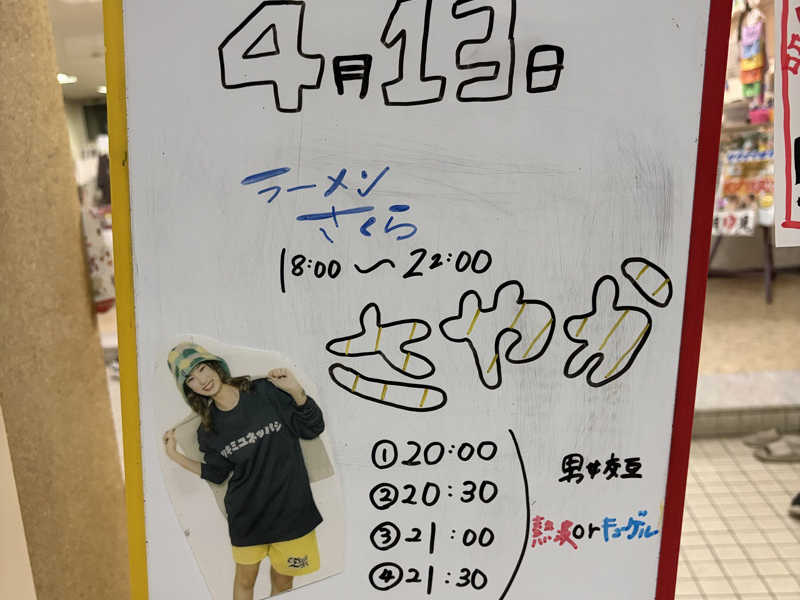 4月13日
ラーメン
さくら
18:00～22:00
さやか
①20:00
②20:30
③21:00
④21:30
男女交互
熱波orキューゲル